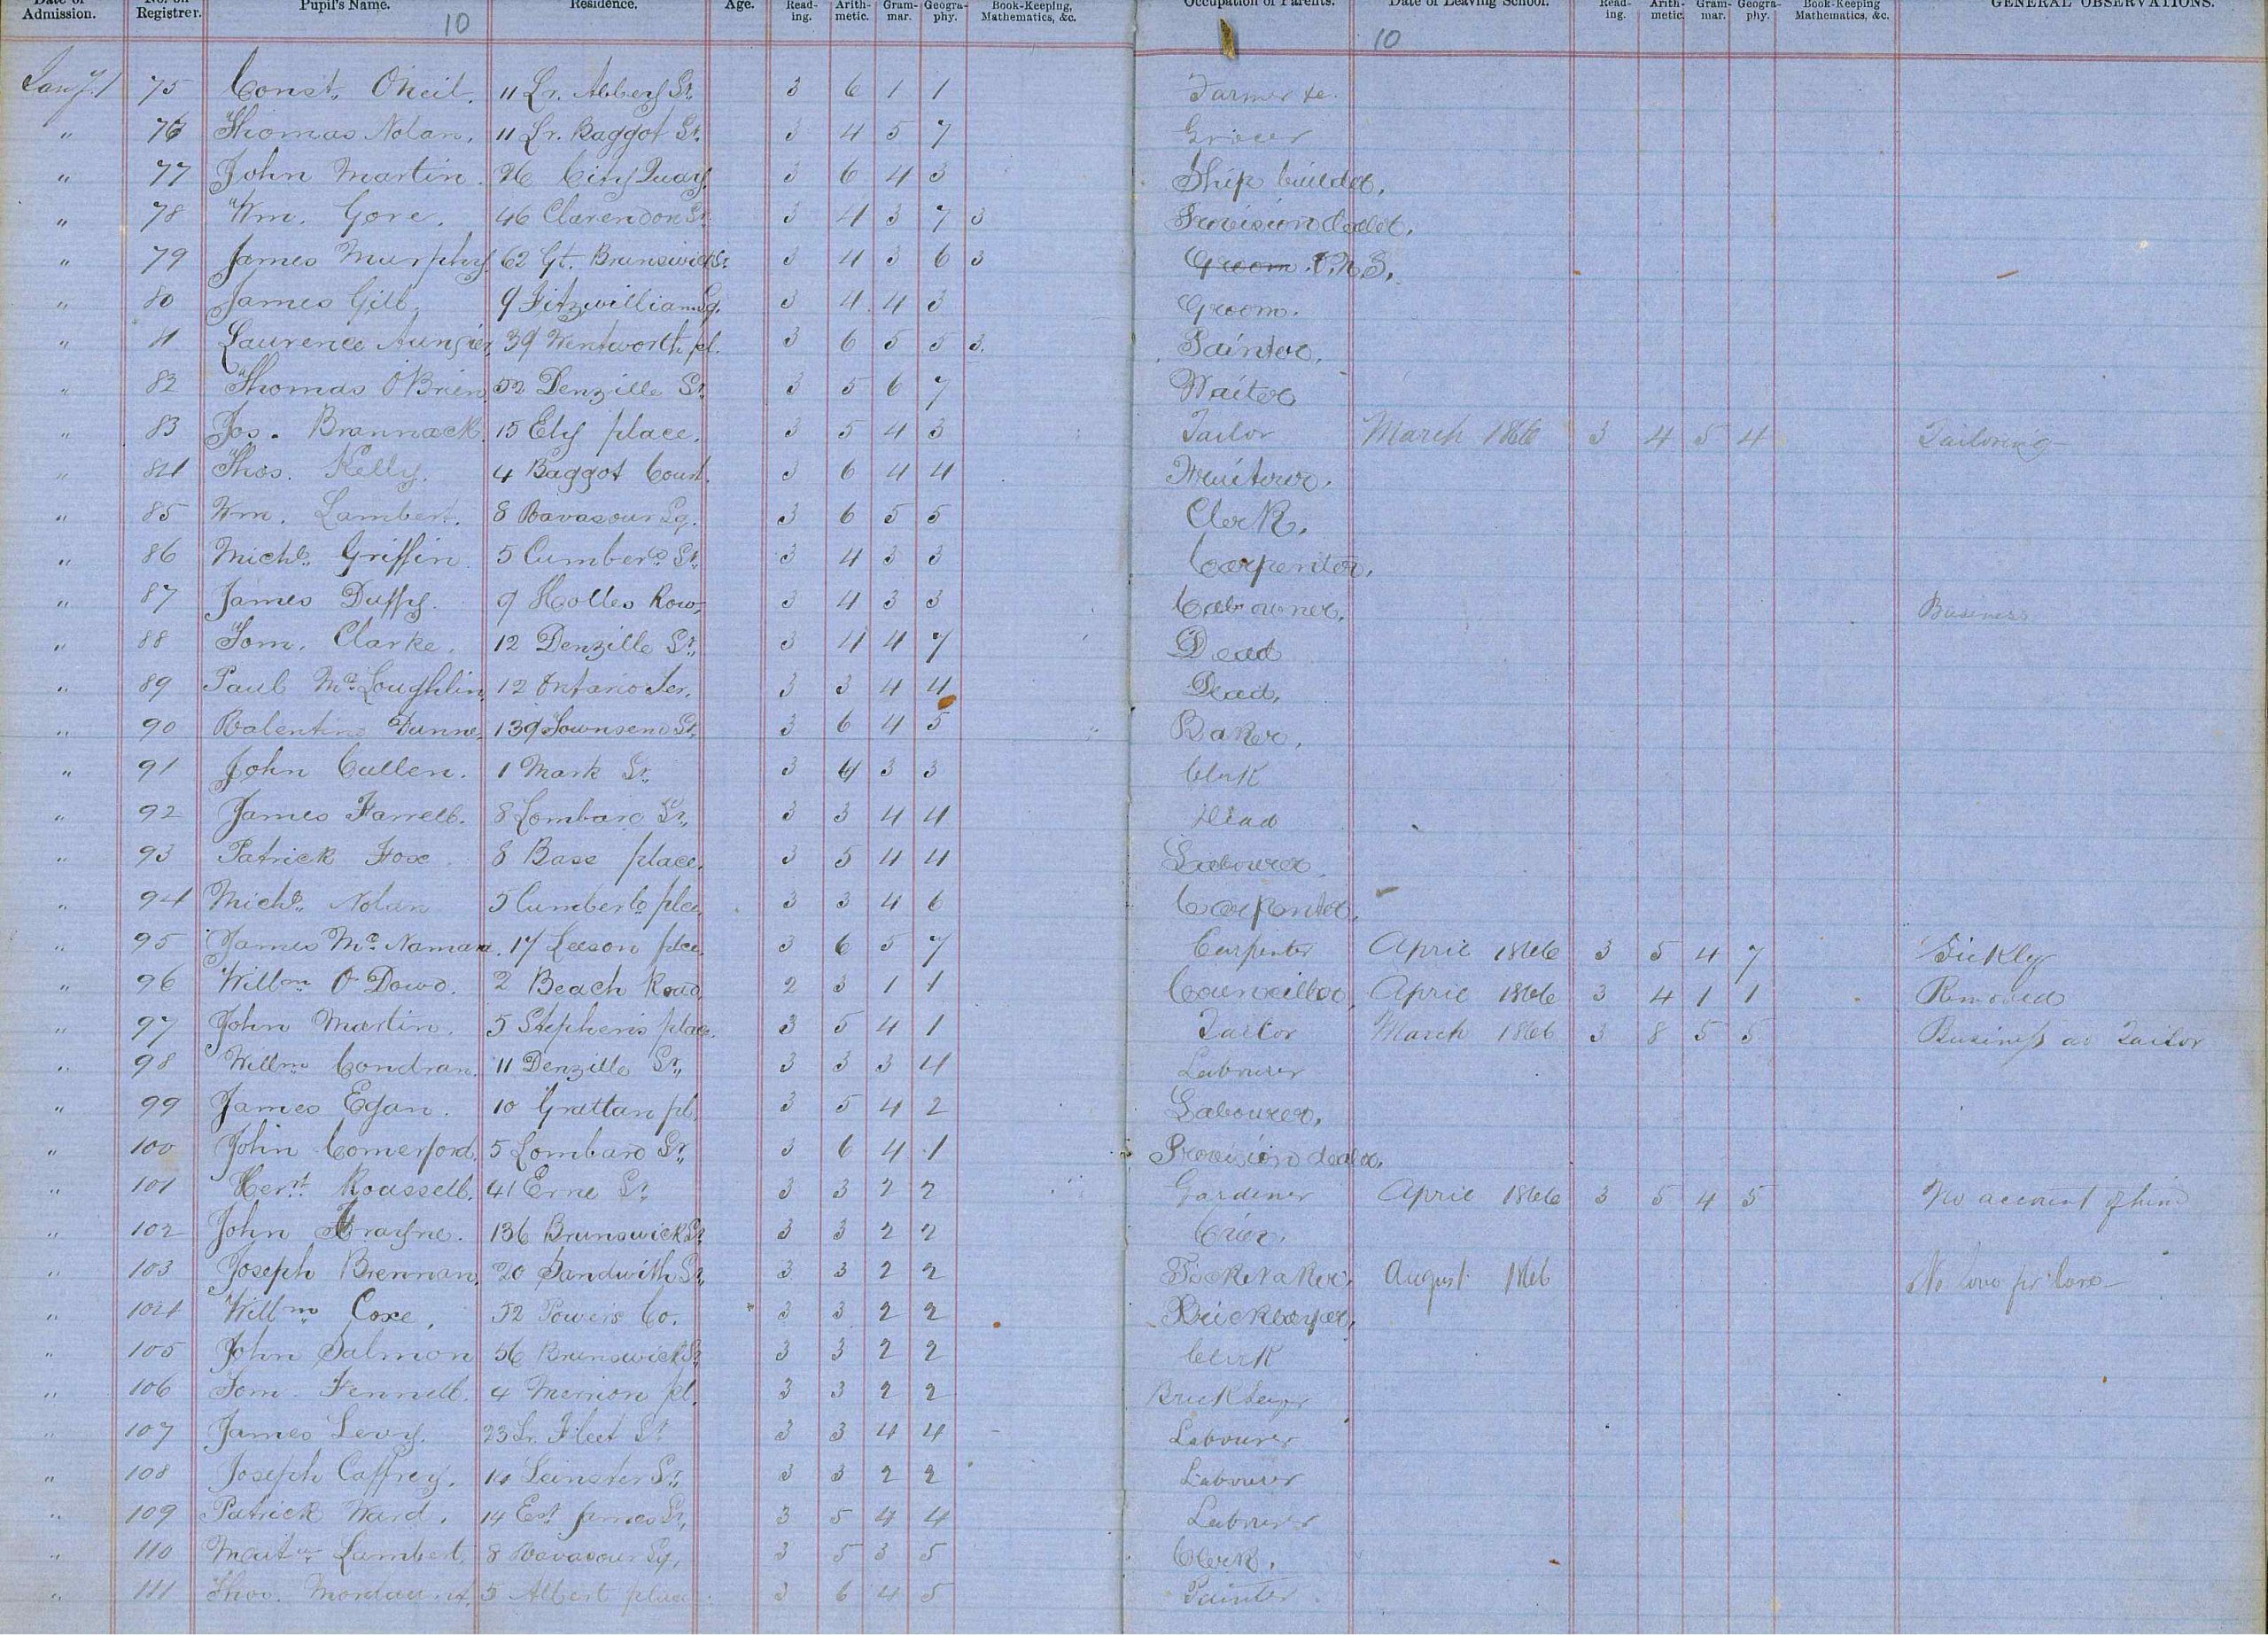 Date of Admission. No. on Registrer. Pupil's Name. Residence. Age. Read-ing. Arith-metic. Gram-mar. Geogra-phy. Book-Keeping, Mathematics, &c. Occupation of Parents. Date of Leaving School. Read-ing. Arith-metic. Gram-mar. Geogra-phy. Book-Keeping Mathematics, &c. GENERAL OBSERVATIONS.
10 10
Jany. 1 75 Const. O'Neil. 11 Lr. Abbey St. 3 6 1 1 Farmer &c.
" 76 Thomas Nolan. 11 Lr. Baggot St. 3 4 5 7 Grocer
" 77 John Martin. 26 City Quay. 3 6 4 3 Ship builder.
" 78 Wm. Gore. 46 Clarendon St. 3 4 3 7 3 Provision dealer.
" 79 James Murphy. 62 Gt. Brunswick St. 3 4 3 6 3 Groom
" 80 James Gill. 9 Fitzwilliam Sq. 3 4 4 3 Groom.
" 81 Laurence Aungier, 39 Wentworth pl. 3 6 5 5 3. Painter.
" 82 Thomas O'Brien 52 Denzille St. 3 5 6 7 Waiter
" 83 Jos. Brannack. 15 Ely place. 3 5 4 3 Tailor March 1866 3 4 5 4 Tailoring
" 84 Thos. Kelly. 4 Baggot Court. 3 6 4 4 Fruiterer.
" 85 Wm. Lambert. 8 Vavasour Sq. 3 6 5 5 Clerk.
" 86 Michl. Griffin. 5 Cumberd. St. 3 4 3 3 Carpenter.
" 87 James Duffy. 9 Holles Row. 3 4 3 3 Cab owner. Business
" 88 Tom. Clarke. 12 Denzille St. 3 4 4 7 Dead
" 89 Paul McLoughlin, 12 Ontario Ter. 3 3 4 4 Dead.
" 90 Valentine Dunne, 139 Townsend St. 3 6 4 5 Baker.
" 91 John Cullen. 1 Mark St. 3 4 3 3 Clerk
" 92 James Farrell. 8 Lombard St. 3 3 4 4 Dead
" 93 Patrick Fox. 8 Bass place. 3 5 4 4 Labourer.
" 94 Michl. Nolan 5 Cumberld. plce. 3 3 4 6 Carpenter.
" 95 James McNamara. 17 Leeson plce. 3 6 5 7 Carpenter April 1866 3 5 4 7 Sickly
" 96 Willm. O'Dowd. 2 Beach Road 2 3 1 1 Councillor. April 1866 3 4 1 1 Removed
" 97 John Martin. 5 Stephen's place. 3 5 4 1 Tailor March 1866 3 8 5 5 Business as Tailor
" 98 Willm. Condran. 11 Denzille St. 3 3 3 4 Labourer
" 99 James Egan. 10 Grattan pl. 3 5 4 2 Labourer.
" 100 John Comerford. 5 Lombard St. 3 6 4 1 Provision dealer.
" 101 Roussell. 41 Erne St. 3 3 2 2 Gardener April 1866 3 5 4 5 No account of him
" 102 John 136 Brunswick St. 3 3 2 2 Crier.
" 103 Joseph Brennan. 20 Sandwith St. 3 3 2 2 August 1866
" 104 Willm. Coxe. 52 Power's Co. 3 3 2 2 Bricklayer.
" 105 John Salmon 56 Brunswick St. 3 3 2 2 Clerk
" 106 Tom. Fennell. 4 Merrion pl. 3 3 2 2 Bricklayer
" 107 James Levy. 23 Lr. Fleet St. 3 3 4 4 Labourer
" 108 Joseph Caffrey. Leinster St. 3 3 2 2 Labourer
" 109 Patrick Ward. 14 Est. James St. 3 5 4 4 Labourer
" 110 Lambert, 8 Vavasour Sq. 3 5 3 5 Clerk.
" 111 Thos. Mordaunt, 5 Albert place 3 6 4 5 Painter.